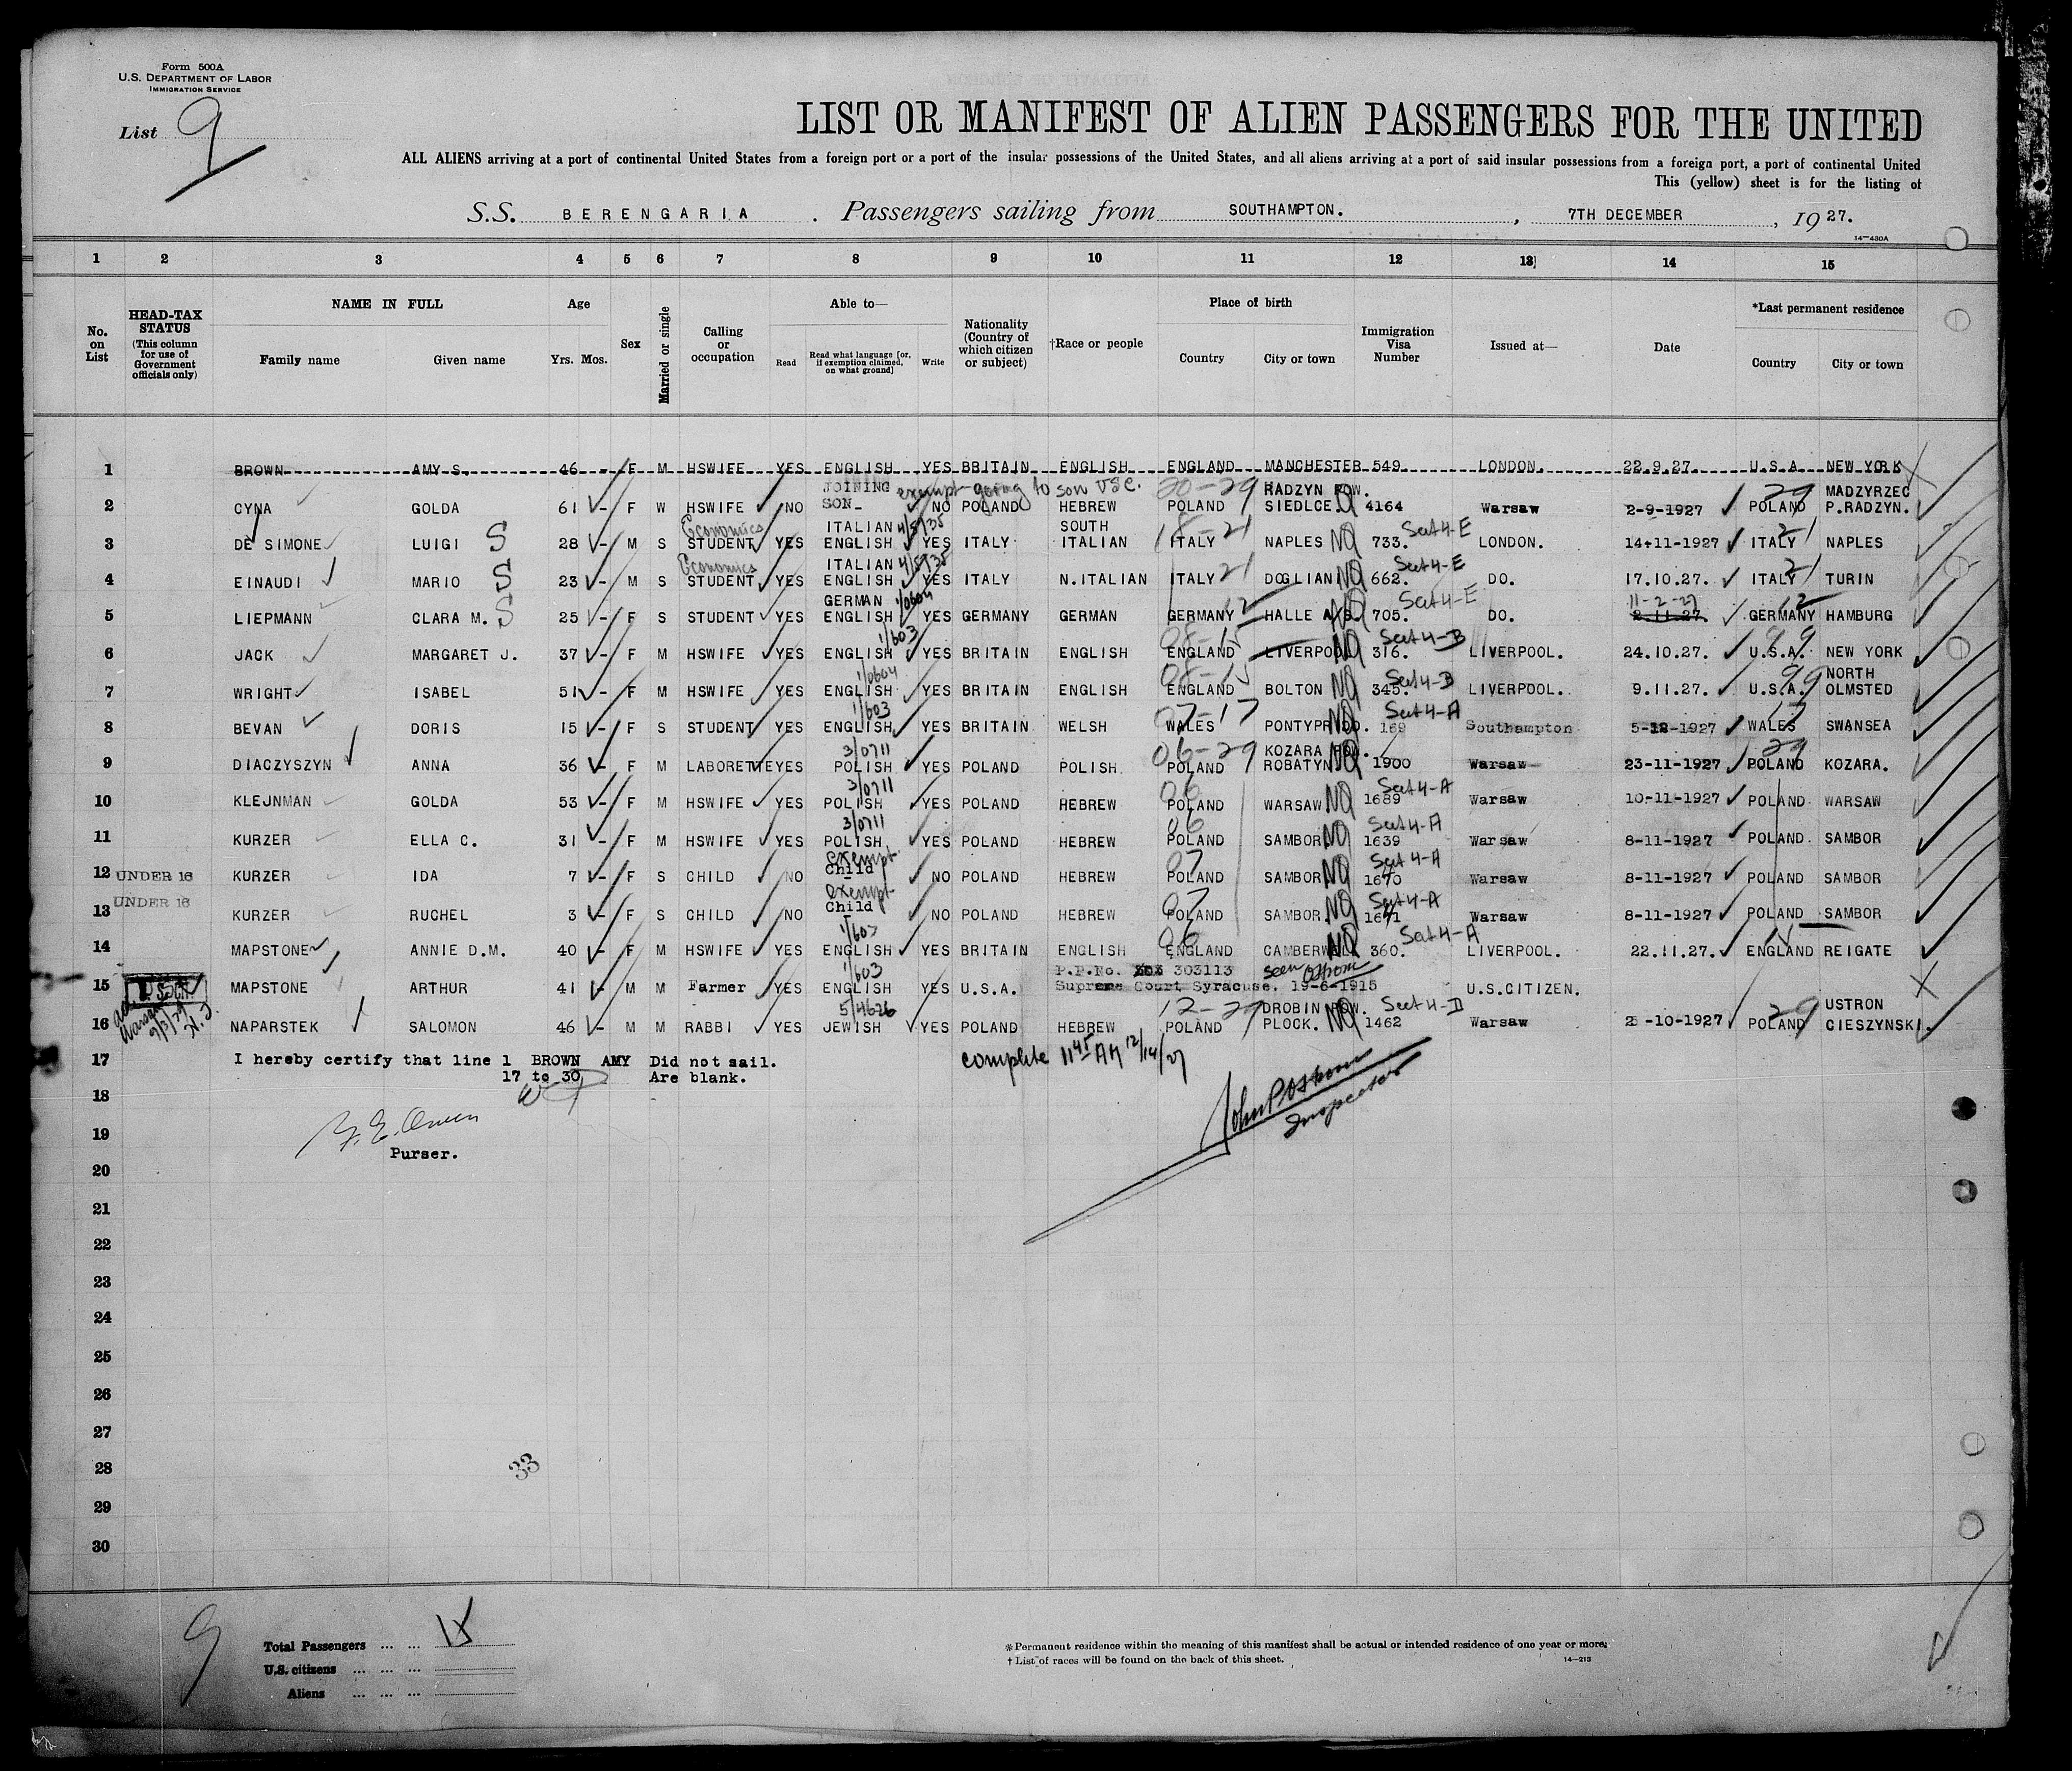 Form 500A
U.S. DEPARTMENT OF LABOR
IMMIGRATION SERVICE
List 9
LIST OR MANIFEST OF ALIEN PASSENGERS FOR THE UNITED
ALL ALIENS arriving at a port of continental United States from a foreign port or a port of the insular possessions of the United States, and all aliens arriving at a port of said insular possessions from a foreign port, a port of continental United
This (yellow) sheet is for the listing of
S.S. BERENGARIA. Passengers sailing from SOUTHAMPTON., 7TH DECEMBER, 1927.
14-430A
1 2 3 4 5 6 7 8 9 10 11 12 13 14 15
No. on List
HEAD-TAX STATUS (This column for use of Government officials only)
NAME IN FULL Family name Given name
Age Yrs. Mos.
Sex
Married or single
Calling or occupation
Able to— Read Read what language [or, if exemption claimed, on what ground] Write
Nationality (Country of which citizen or subject)
†Race or people
Place of birth Country City or town
Immigration Visa Number
Issued at—
Date
*Last permanent residence Country City or town
1 BROWN AMY S. 46 - F M HSWIFE YES ENGLISH YES BRITAIN ENGLISH ENGLAND MANCHESTER 549. LONDON. 22.9.27. U.S.A NEW YORK
JOINING exempt-going to son USC. 20-29 RADZYN POW. 29 MADZYRZEC
2 CYNA GOLDA 61 - F W HSWIFE NO SON- NO POLAND HEBREW POLAND SIEDLCE. 4164 Warsaw 2-9-1927 POLAND P.RADZYN.
Economics ITALIAN 4/5935 SOUTH 21 Sect 4-E 21
3 DE SIMONE LUIGI S 28 - M S STUDENT YES ENGLISH YES ITALY ITALIAN ITALY NAPLES NQ 733. LONDON. 14-11-1927 ITALY NAPLES
Economics ITALIAN 4/5935 21 Sect 4-E 21
4 EINAUDI MARIO S 23 - M S STUDENT YES ENGLISH YES ITALY N.ITALIAN ITALY DOGLIAN NQ 662. DO. 17.10.27. ITALY TURIN
GERMAN 1/0604 12 Sect 4-E 11-2-27 12
5 LIEPMANN CLARA M. S 25 - F S STUDENT YES ENGLISH YES GERMANY GERMAN GERMANY HALLE A/S. 705. DO. 2.11.27. GERMANY HAMBURG
1/603 08-15 Sect 4-B 99
6 JACK MARGARET J. 37 - F M HSWIFE YES ENGLISH YES BRITAIN ENGLISH ENGLAND LIVERPOOL NQ 316. LIVERPOOL. 24.10.27. U.S.A. NEW YORK
1/0604 08-15 Sect 4-B 99 NORTH
7 WRIGHT ISABEL 51 - F M HSWIFE YES ENGLISH YES BRITAIN ENGLISH ENGLAND BOLTON NQ 345. LIVERPOOL. 9.11.27. U.S.A. OLMSTED
1/603 07-17 Sect 4-A 17
8 BEVAN DORIS 15 - F S STUDENT YES ENGLISH YES BRITAIN WELSH WALES PONTYPRIDD. NQ 169 Southampton 5-12-1927 WALES SWANSEA
3/0711 06-29 KOZARA POW. 29
9 DIACZYSZYN ANNA 36 - F M LABORETTE YES POLISH YES POLAND POLISH. POLAND ROBATYN NQ 1900 Warsaw 23-11-1927 POLAND KOZARA.
3/0711 06 Sect 4-A
10 KLEJNMAN GOLDA 53 - F M HSWIFE YES POLISH YES POLAND HEBREW POLAND WARSAW NQ 1689 Warsaw 10-11-1927 POLAND WARSAW
3/0711 06 Sect 4-A
11 KURZER ELLA C. 31 - F M HSWIFE YES POLISH YES POLAND HEBREW POLAND SAMBOR NQ 1639 Warsaw 8-11-1927 POLAND SAMBOR
exempt 07 Sect 4-A
12 UNDER 16 KURZER IDA 7 - F S CHILD NO Child NO POLAND HEBREW POLAND SAMBOR NQ 1670 Warsaw 8-11-1927 POLAND SAMBOR
UNDER 16 exempt 07 Sect 4-A
13 KURZER RUCHEL 3 - F S CHILD NO Child NO POLAND HEBREW POLAND SAMBOR. NQ 1671 Warsaw 8-11-1927 POLAND SAMBOR
06 Sect 4-A
14 MAPSTONE ANNIE D.M. 40 - F M HSWIFE YES ENGLISH YES BRITAIN ENGLISH ENGLAND CAMBERWELL NQ 360. LIVERPOOL. 22.11.27. ENGLAND REIGATE
1/603 P.P.No. 303113 seen Osborne
15 MAPSTONE ARTHUR 41 - M M Farmer YES ENGLISH YES U.S.A. Supreme Court Syracuse. 19-6-1915 U.S.CITIZEN.
5/4626 12-29 DROBIN POW. Sect 4-D 29 USTRON
16 NAPARSTEK SALOMON 46 - M M RABBI YES JEWISH YES POLAND HEBREW POLAND PLOCK. NQ 1462 Warsaw -10-1927 POLAND CIESZYNSKI.
17 I hereby certify that line 1 BROWN AMY Did not sail. complete 11 45 AM 12/14/27
17 to 30 Are blank.
18
John P Osborne
Inspector
19
Purser.
20
21
22
23
24
25
26
27
28
33
29
30
9
Total Passengers ... ...
U.S. citizens ... ... ...
Aliens ... ... ...
*Permanent residence within the meaning of this manifest shall be actual or intended residence of one year or more.
†List of races will be found on the back of this sheet. 14-213